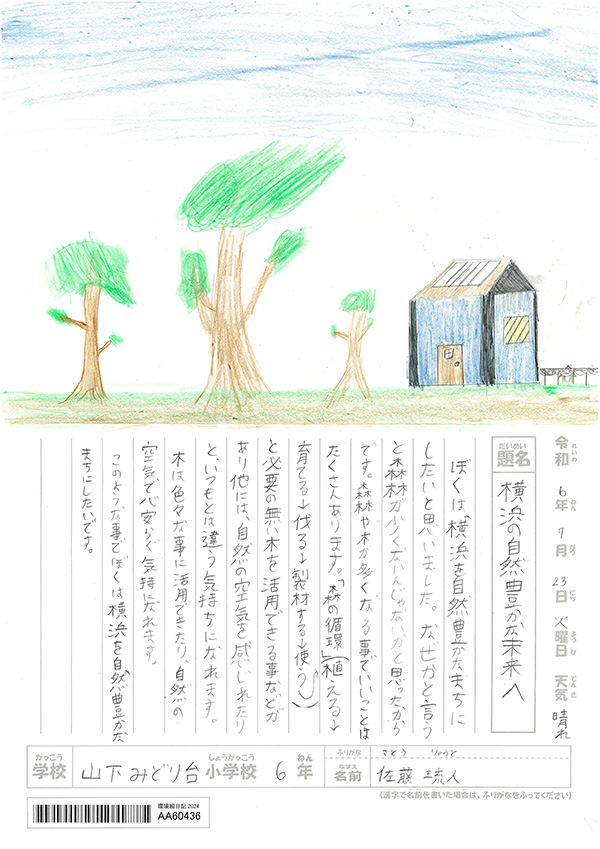 令和 6年 7月 23日 火曜日 天気 晴れ
れいわ ねん がつ にち ようび てんき
だいめい
題名 横浜の自然豊かな未来へ
ぼくは、横浜を自然豊かなまちに
したいと思いました。なぜかと言う
と森林が少くないんじゃないかと思ったから
です。森林や木が多くなる事でいいことは
たくさんあります。「森の循環」(植える→
育てる→伐る→製材する→使う)
と必要の無い木を活用できる事などが
あり他には、自然の空気を感じれたり
と、いつもとは違う気持ちになれます。
木は色々な事に活用できたり、自然の
空気で心安らぐ気持になれます。
このような事でぼくは横浜を自然豊かな
まちにしたいです。
がっこう しょうがっこう ねん
学校 山下みどり台 小学校 6年
ふりがな さとう りゅうと
なまえ
名前 佐藤 琉人
(漢字で名前を書いた場合は、ふりがなをふってください)
環境絵日記 2024
AA60436